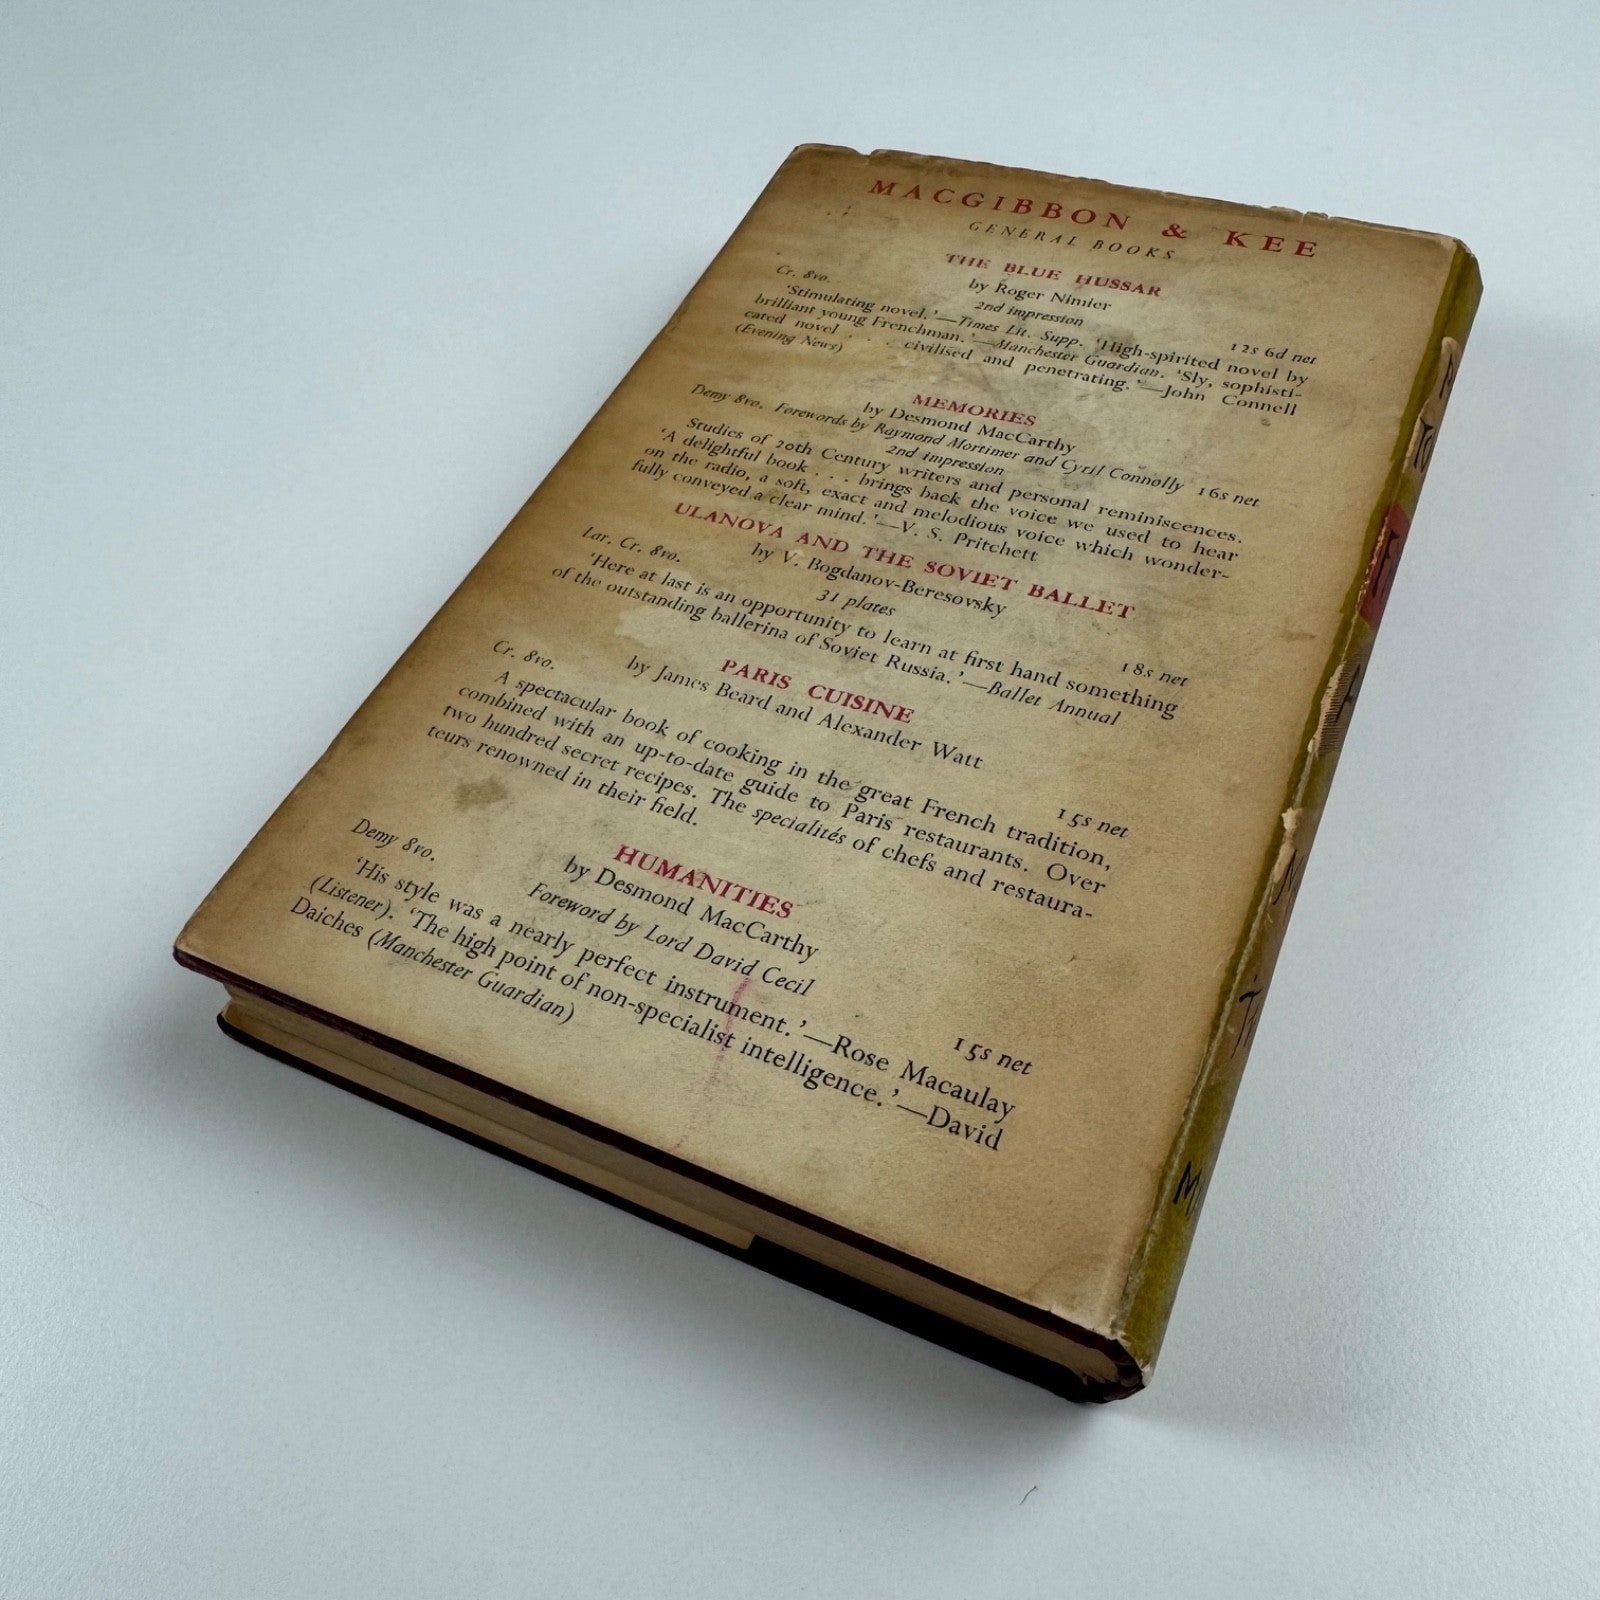 MACGIBBON & KEE
GENERAL BOOKS
THE BLUE HUSSAR
by Roger Nimier
Cr. 8vo. 2nd impression 12s 6d net
'Stimulating novel.'—Times Lit. Supp. 'High-spirited novel by
brilliant young Frenchman.'—Manchester Guardian. 'Sly, sophisti-
cated novel . . . civilised and penetrating.'—John Connell
(Evening News)
MEMORIES
by Desmond MacCarthy
Forewords by Raymond Mortimer and Cyril Connolly
Demy 8vo. 2nd impression 16s net
Studies of 20th Century writers and personal reminiscences.
'A delightful book . . . brings back the voice we used to hear
on the radio, a soft, exact and melodious voice which wonder-
fully conveyed a clear mind.'—V. S. Pritchett
ULANOVA AND THE SOVIET BALLET
by V. Bogdanov-Beresovsky
Lar. Cr. 8vo. 31 plates 18s net
'Here at last is an opportunity to learn at first hand something
of the outstanding ballerina of Soviet Russia.'—Ballet Annual
PARIS CUISINE
by James Beard and Alexander Watt
Cr. 8vo. 15s net
A spectacular book of cooking in the great French tradition,
combined with an up-to-date guide to Paris restaurants. Over
two hundred secret recipes. The specialités of chefs and restaura-
teurs renowned in their field.
HUMANITIES
by Desmond MacCarthy
Foreword by Lord David Cecil
Demy 8vo. 15s net
'His style was a nearly perfect instrument.'—Rose Macaulay
(Listener). 'The high point of non-specialist intelligence.'—David
Daiches (Manchester Guardian)